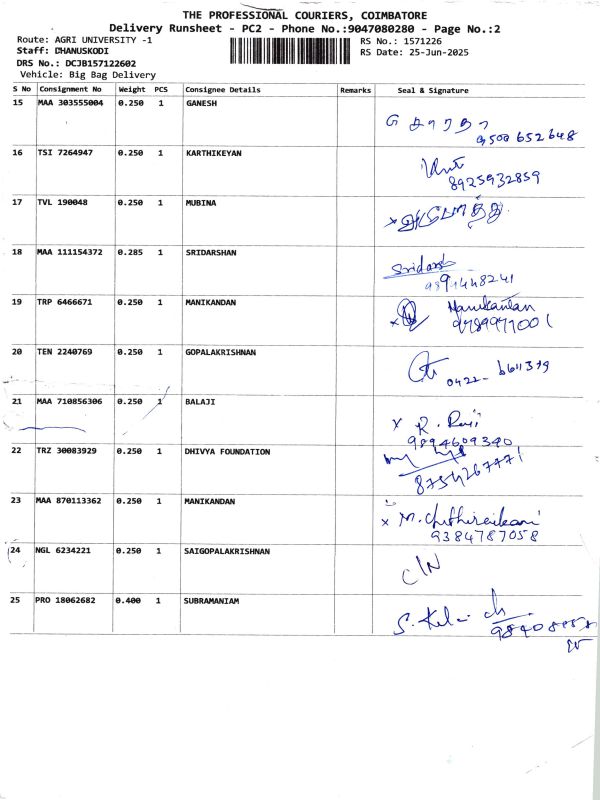 THE PROFESSIONAL COURIERS, COIMBATORE
Delivery Runsheet - PC2 - Phone No.:9047080280 - Page No.:2
Route: AGRI UNIVERSITY -1
RS No.: 1571226
Staff: DHANUSKODI
RS Date: 25-Jun-2025
DRS No.: DCJB157122602
Vehicle: Big Bag Delivery
S No Consignment No Weight PCS Consignee Details Remarks Seal & Signature
15 MAA 303555004 0.250 1 GANESH
9500652648
16 TSI 7264947 0.250 1 KARTHIKEYAN
8925932859
17 TVL 190048 0.250 1 MUBINA
18 MAA 111154372 0.285 1 SRIDARSHAN
Sridarsh
19 TRP 6466671 0.250 1 MANIKANDAN
Manikandan
20 TEN 2240769 0.250 1 GOPALAKRISHNAN
0422-6611379
21 MAA 710856306 0.250 1 BALAJI
x R. Raji
9894609340
22 TRZ 30083929 0.250 1 DHIVYA FOUNDATION
8754267471
23 MAA 870113362 0.250 1 MANIKANDAN
x M. Chithiraikani
9384787058
24 NGL 6234221 0.250 1 SAIGOPALAKRISHNAN
C/N
25 PRO 18062682 0.400 1 SUBRAMANIAM